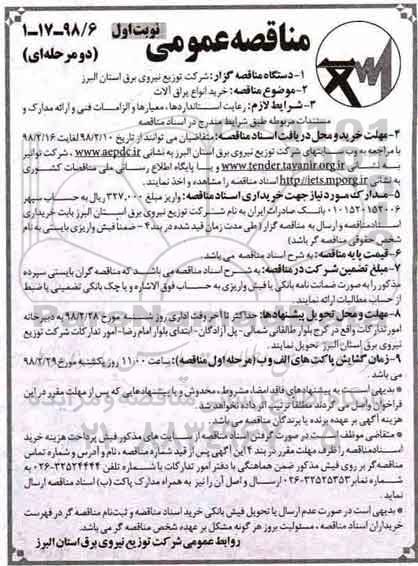 مناقصه عمومی
نوبت اول
۹۸/۶-۱۷-۱
(دو مرحله‌ای)
۱-دستگاه مناقصه گزار: شرکت توزیع نیروی برق استان البرز
۲-موضوع مناقصه: خرید انواع یراق آلات
۳-شرایط لازم: رعایت استانداردها، معیارها و الزامات فنی و ارائه مدارک و
مستندات مربوطه طبق شرایط مندرج در اسناد مناقصه
۴-مهلت خرید و محل دریافت اسناد مناقصه: متقاضیان می توانند از تاریخ ۹۸/۲/۱۰ لغایت ۹۸/۲/۱۶
با مراجعه به وب سایتهای شرکت توزیع نیروی برق استان البرز به نشانی www.aepdc.ir، شرکت توانیر
به نشانی www.tender.tavanir.org.ir و یا پایگاه اطلاع رسانی ملی مناقصات کشوری
به نشانی http://iets.mporg.ir اسناد مناقصه را مشاهده و اخذ نمایند.
۵-مدارک مورد نیاز جهت خریداری اسناد مناقصه: واریز مبلغ ۳۲۷،۰۰۰ ریال به حساب سپهر
۰۱۰۱۵۲۰۱۵۲۰۰۶ بانک صادرات ایران به نام شرکت توزیع نیروی برق استان البرز بابت خریداری
اسناد مناقصه و ارسال به مناقصه گزار (طی مدت زمان قید شده در بند ۴- ضمنا فیش واریزی بایستی به نام
شخص حقوقی مناقصه گر باشد)
۶-قیمت پایه مناقصه: به شرح اسناد مناقصه می باشد.
۷-مبلغ تضمین شرکت در مناقصه: به شرح اسناد مناقصه می باشد که مناقصه گران بایستی سپرده
مذکور را به صورت ضمانت نامه بانکی یا فیش واریزی به حساب فوق الاشاره و یا چک بانکی تضمینی یا ضبط
از حساب مطالبات ارائه نمایند.
۸-مهلت و محل تحویل پیشنهادها: حداکثر تا آخر وقت اداری روز شنبه مورخ ۹۸/۲/۲۸ به دبیرخانه
امور تدارکات واقع در کرج بلوار طالقانی شمالی-پل آزادگان-ابتدای بلوار امام رضا-امور تدارکات شرکت توزیع
نیروی برق استان البرز تحویل نمایند.
۹-زمان گشایش پاکت های الف و ب (مرحله اول مناقصه): ساعت ۱۱:۰۰ روز یکشنبه مورخ ۹۸/۲/۲۹
می باشد.
* بدیهی است به پیشنهادهای فاقد امضا، مشروط، مخدوش و یا پیشنهادهایی که پس از مهلت مقرر در این
فراخوان واصل می گردند مطلقا ترتیب اثر داده نخواهد شد.
هزینه آگهی بر عهده برنده یا برندگان مناقصه می باشد.
* متقاضی موظف است در صورت گرفتن اسناد مناقصه از سایت های مذکور فیش پرداخت هزینه خرید
اسناد مناقصه را ظرف مهلت مقرر در بند ۴ این آگهی پس از قید شماره مناقصه، نام و آدرس و شماره تماس
مناقصه گر بر روی فیش مذکور ضمن هماهنگی با دفتر امور تدارکات با شماره تلفن ۳۲۵۲۴۴۴۴-۰۲۶ به
شماره نمابر ۳۲۵۲۵۳۵۳-۰۲۶ ارسال و اصل آن را نیز به همراه مدارک پاکت (ب) اسناد مناقصه ارسال
نمایند.
* بدیهی است در صورت عدم ارسال یا تحویل فیش بانکی خرید اسناد و ثبت نام مناقصه گر در فهرست
خریداران اسناد مناقصه، مسئولیت بروز هر گونه مشکل بر عهده شخص مناقصه گر می باشد.
روابط عمومی شرکت توزیع نیروی برق استان البرز